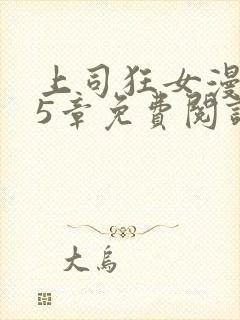 上司狂女漫
5章免費閱讀
大烏